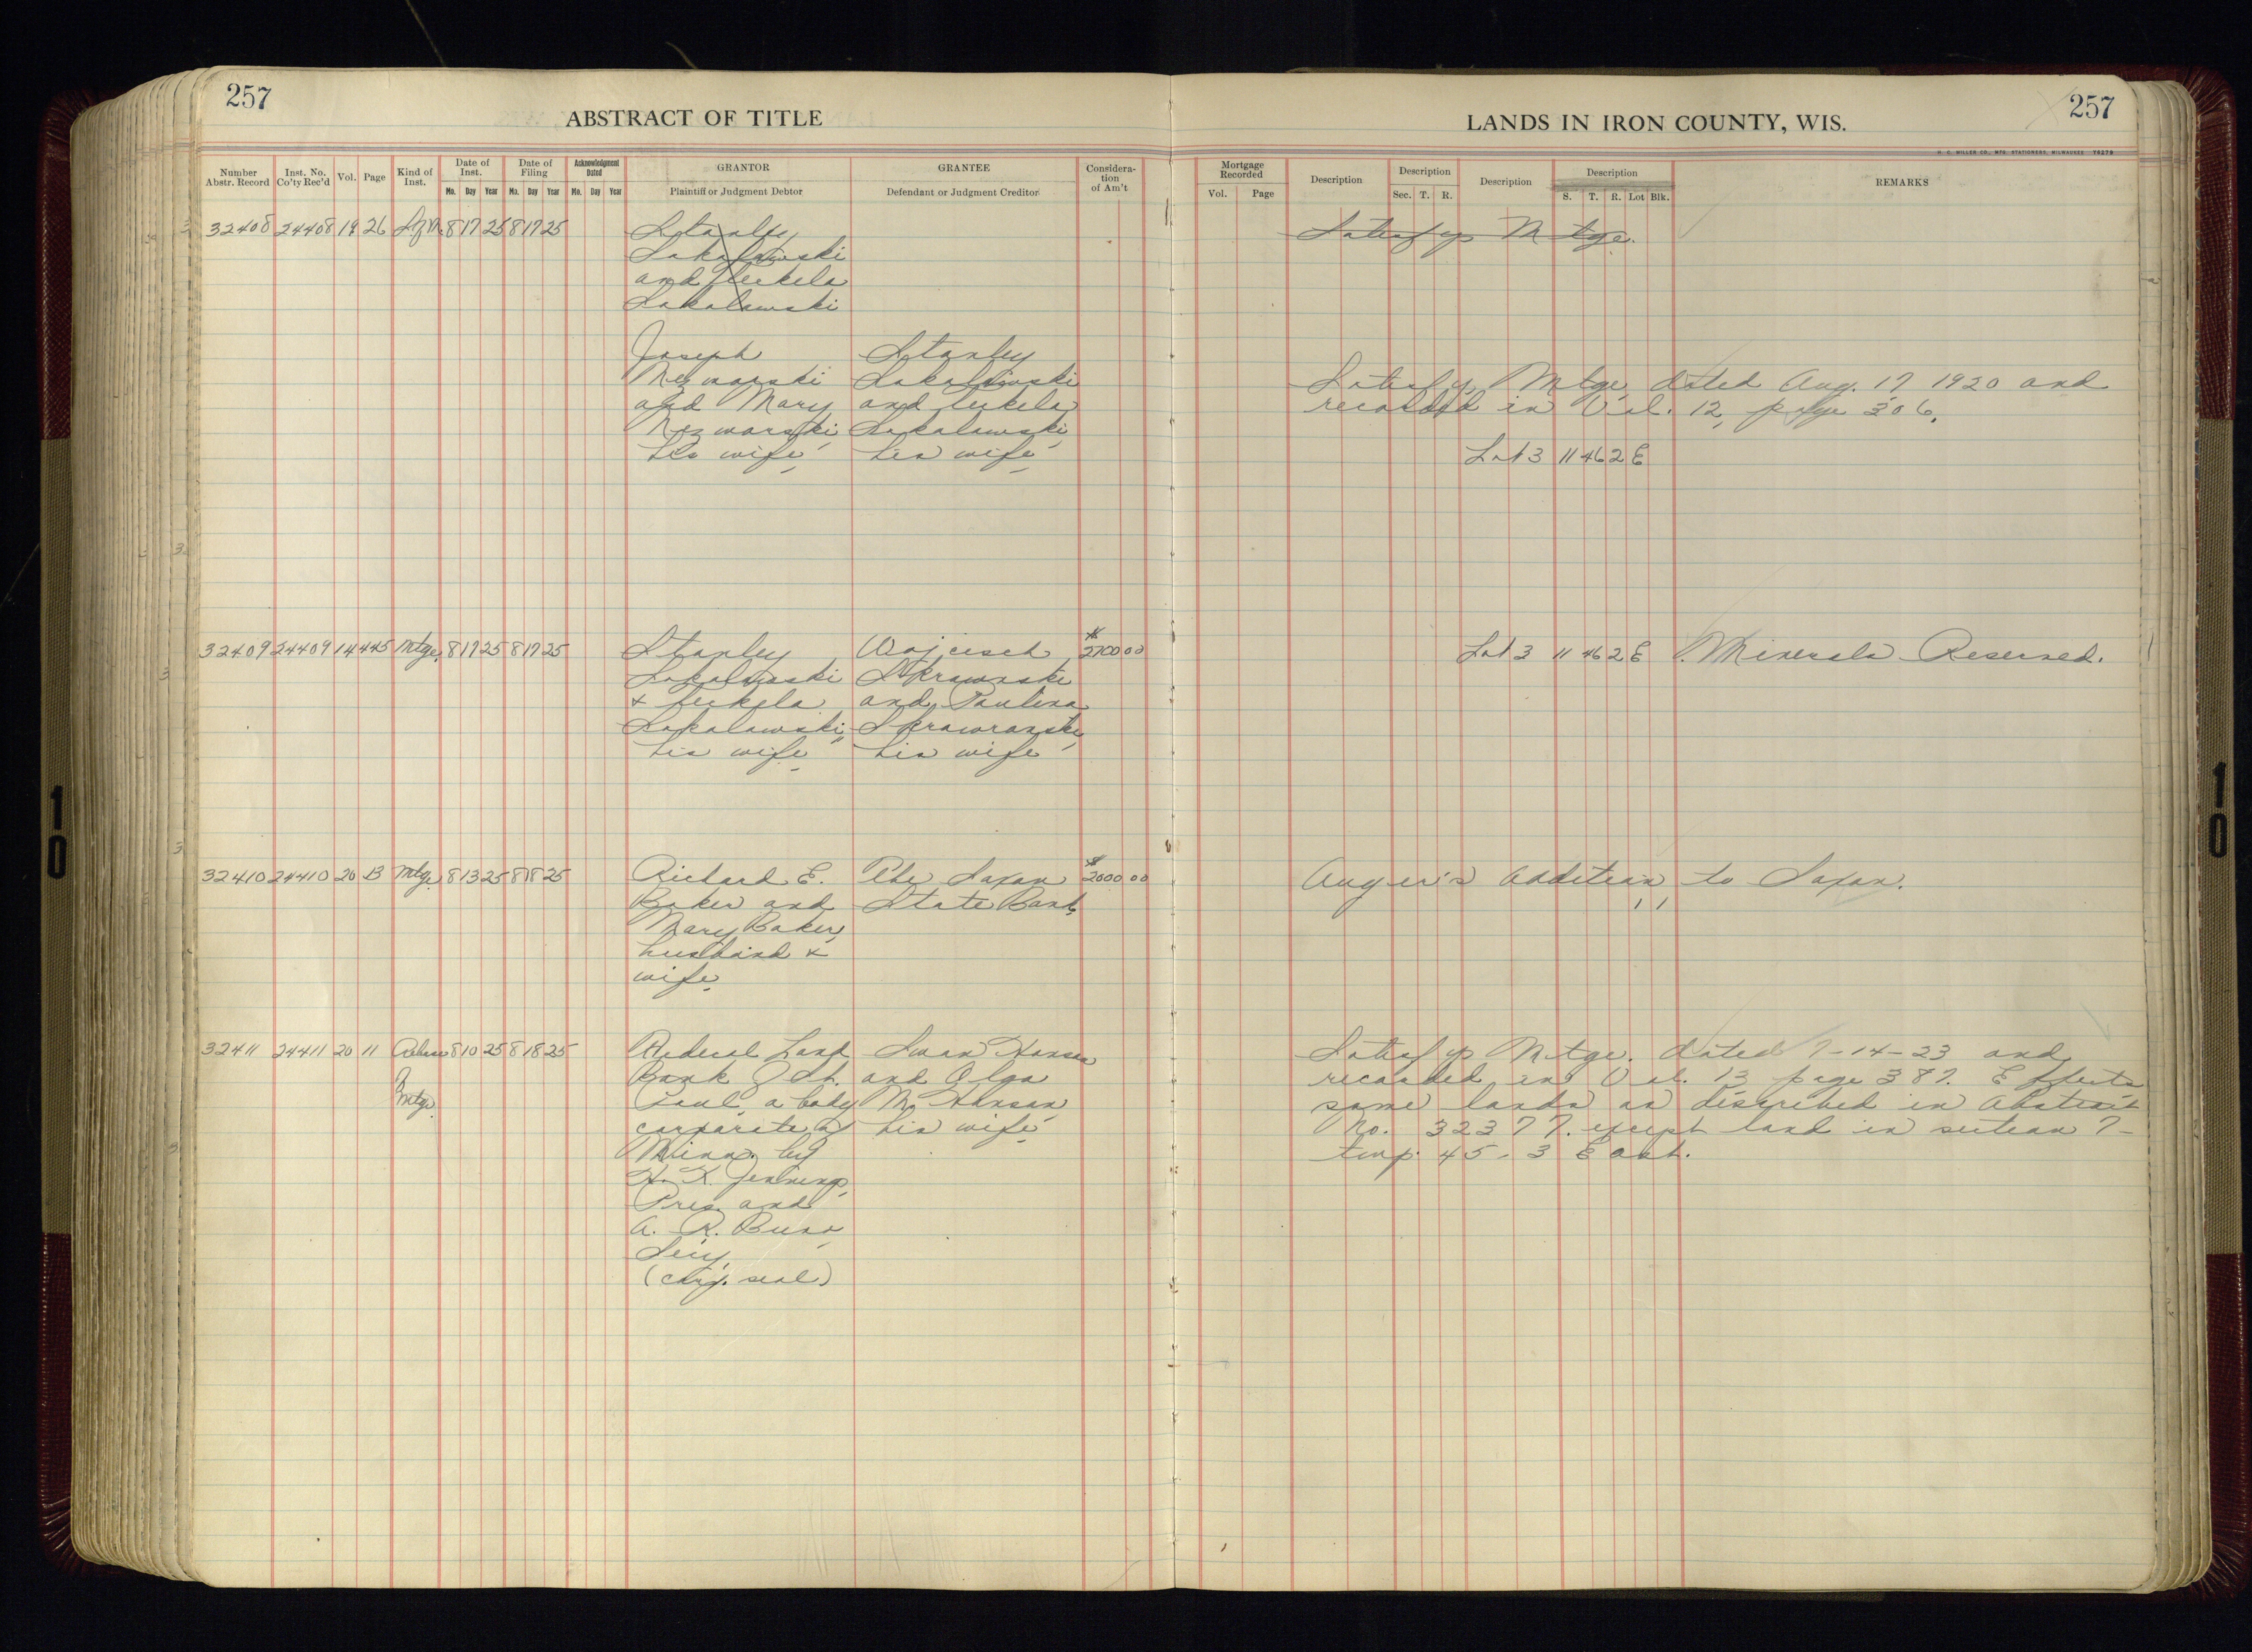 257
ABSTRACT OF TITLE
LANDS IN IRON COUNTY, WIS.
257
H. C. MILLER CO., MFG. STATIONERS, MILWAUKEE 76276
Number Abstr. Record
Inst. No. Co'ty Rec'd
Vol.
Page
Kind of Inst.
Date of Inst.
Mo. Day Year
Date of Filing
Mo. Day Year
Acknowledgment Dated
Mo. Day Year
GRANTOR
Plaintiff or Judgment Debtor
GRANTEE
Defendant or Judgment Creditor
Considera-
tion
of Am't
Mortgage Recorded
Vol. Page
Description
Description
Sec. T. R.
Description
Description
S. T. R. Lot Blk.
REMARKS
32408 24408 19 26 S. of M. 8 17 25 8 17 25
Stanley
and
Satisfys Mtge.
Joseph
Stanley
and Mary
his wife
his wife
Satisfys Mtge dated Aug. 17 1920 and
recorded in Vol. 12, page 306.
Lot 3 11 46 2 E
32409 24409 14 445 Mtge. 8 17 25 8 17 25
Stanley
Wojciech
2700 00
Lot 3 11 46 2 E Minerals Reserved.
and Paulina
his wife
his wife
32410 24410 20 13 Mtge 8 13 25 8 18 25
Richard E. The Saxon 2000 00
Auger's Addition to Saxon.
Baker and State Bank
Mary Baker,
husband &
wife
32411 24411 20 11 Release 8 10 25 8 18 25
of
Mtge.
Federal Land Swan Hanson
Bank of St. and Olga
Paul, a body M. Hanson
corporate of his wife
Minn. by
H. K. Jennings,
Pres. and
Secy.
(Corp. seal)
Satisfys Mtge. dated 7-14-23 and
recorded in Vol. 13 page 387. Effects
same lands as described in Abstract
No. 32377. except land in section 7-
twp. 45-3 East.
10
10